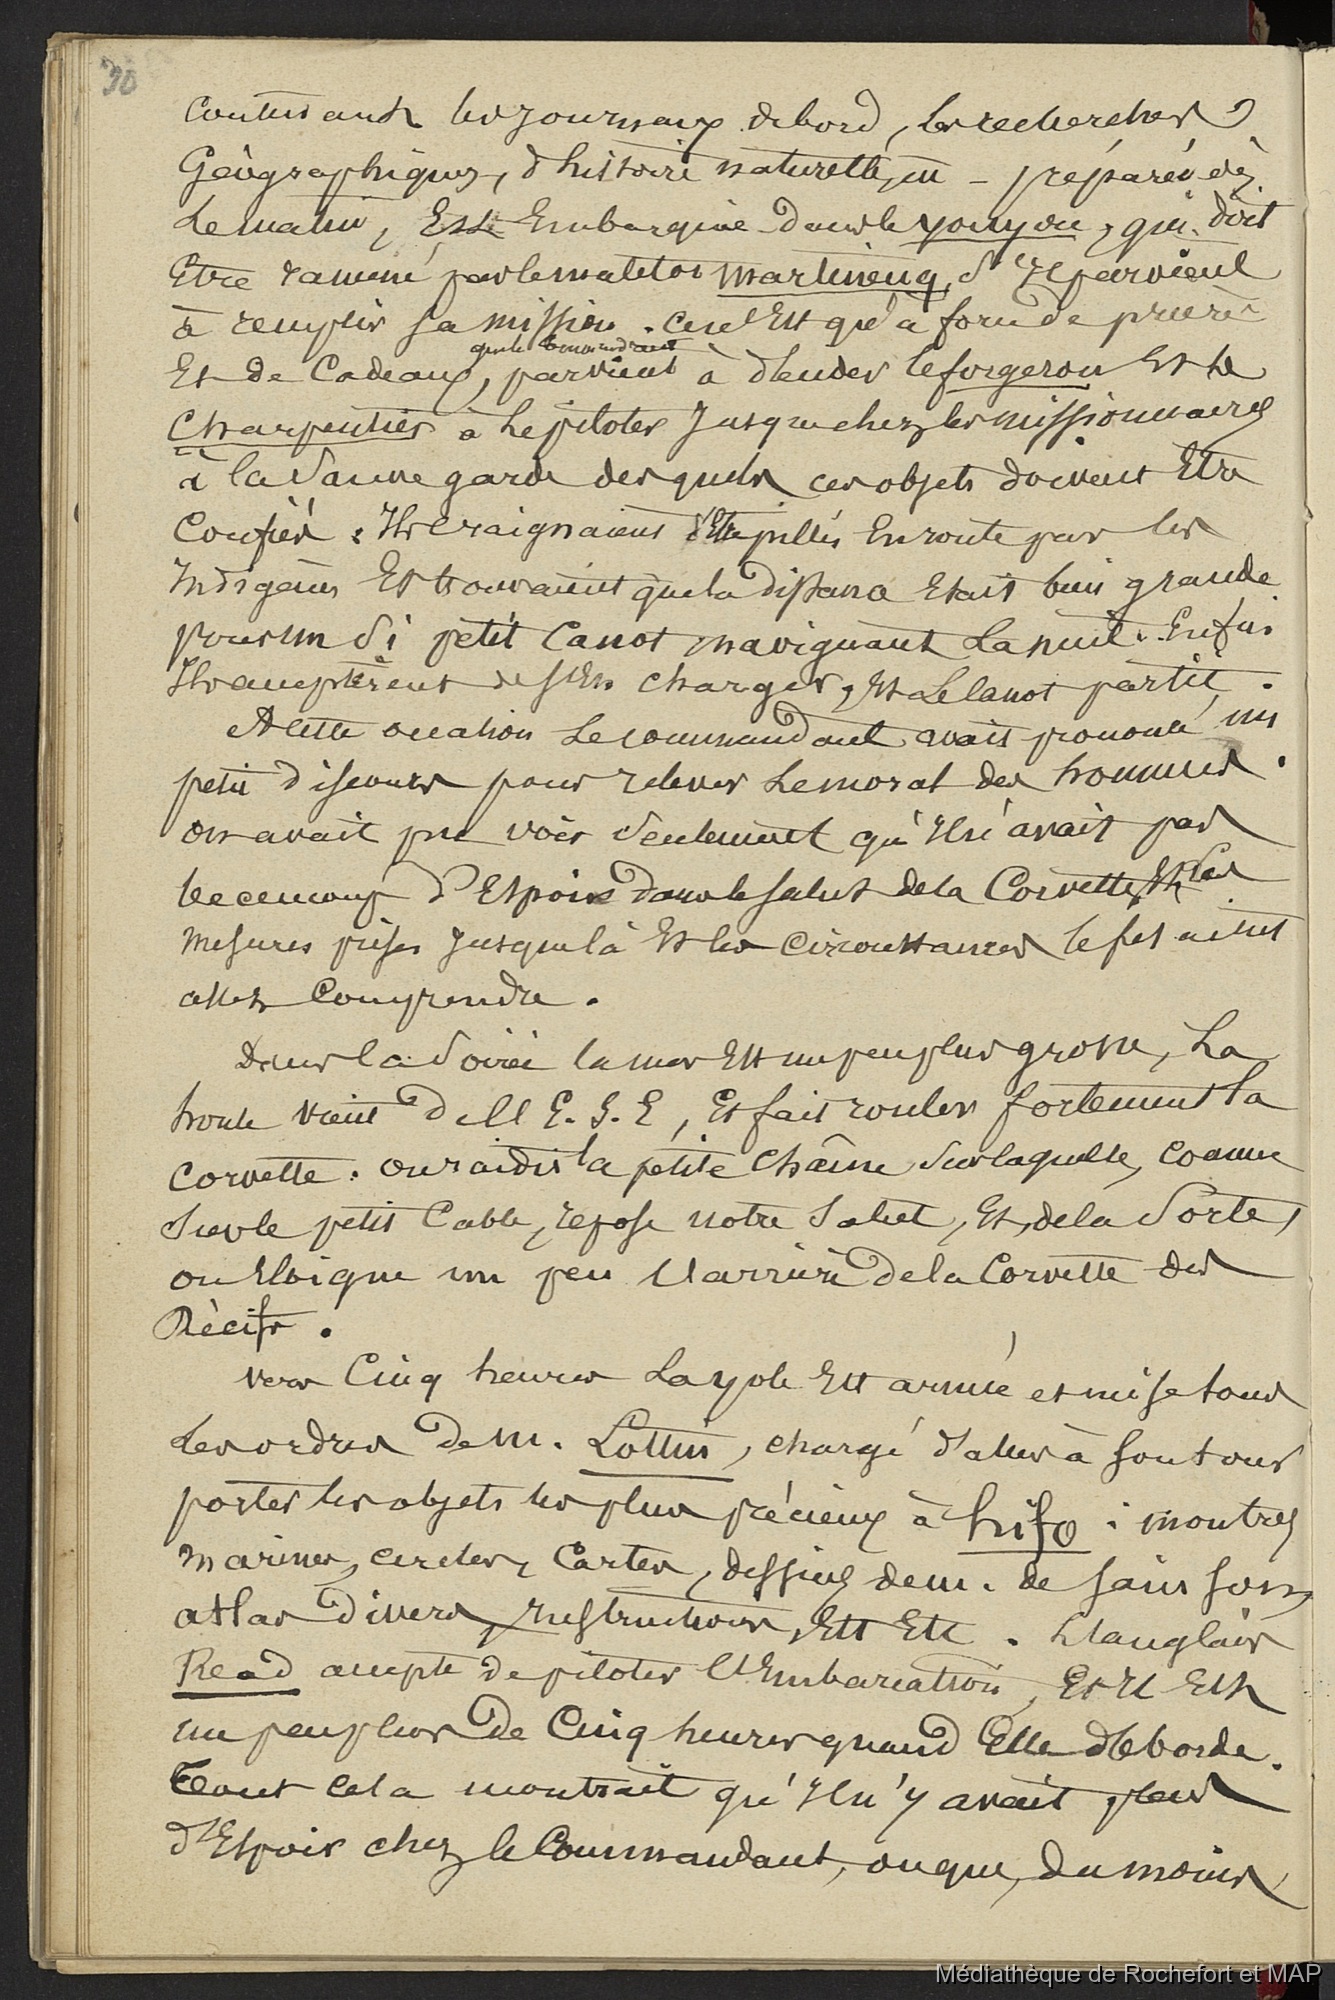 30
Contenant les journaux de bord, les recherches
Géographiques, d'histoire naturelle, etc - préparée dès
Le matin, Est Embarquée dans le youyou, qui doit
Etre ramené par le matelot Martineng, s'Il parvient
à remplir sa mission. Ce n'Est qu'à force de prières
que le Commandant
Et de Cadeaux, parvient à décider le forgeron Et le
Charpentier à Le piloter Jusque chez les missionnaires
à la Sauvegarde desquels ces objets doivent Etre
Confiés. Ils Craignaient d'Etre pillés En route par les
Indigènes Et trouvaient que la distance Etait bien grande
pour un Si petit Canot naviguant La nuit. Enfin
Ils acceptèrent de s'En charger, Et Le Canot partit.
A Cette occasion Le commandant avait prononcé un
petit discours pour relever Le moral des hommes.
On avait pu voir Seulement qu'Il n'avait pas
beaucoup d'Espoir dans le salut de la Corvette, Et les
Mesures prises Jusque là Et les Circonstances le faisaient
assez Comprendre.
Dans la Soirée la mer Est un peu plus grosse, La
houle vient de l'E. S. E, Et fait rouler fortement la
Corvette. On raidit la petite Chaîne Sur laquelle, comme
Sur le petit Cable, repose notre Salut, Et, de la Sorte,
on Eloigne un peu l'arrière de la Corvette des
Récifs.
Vers Cinq heures La yole Est armée et mise sous
Les ordres de M. Lottin, chargé d'aller à son tour
porter les objets les plus précieux à hifo : montres
Marines, cercles, Cartes, dessins de M. de Sainson,
atlas divers, Instructions, Ett Etc. L'anglais
Read accepte de piloter l'Embarcation, Et Il Est
un peu plus de Cinq heures quand Elle déborde.
Tout Cela montrait qu'Il n'y avait plus
d'Espoir chez le Commandant, ou que, du moins
Médiathèque de Rochefort et MAP